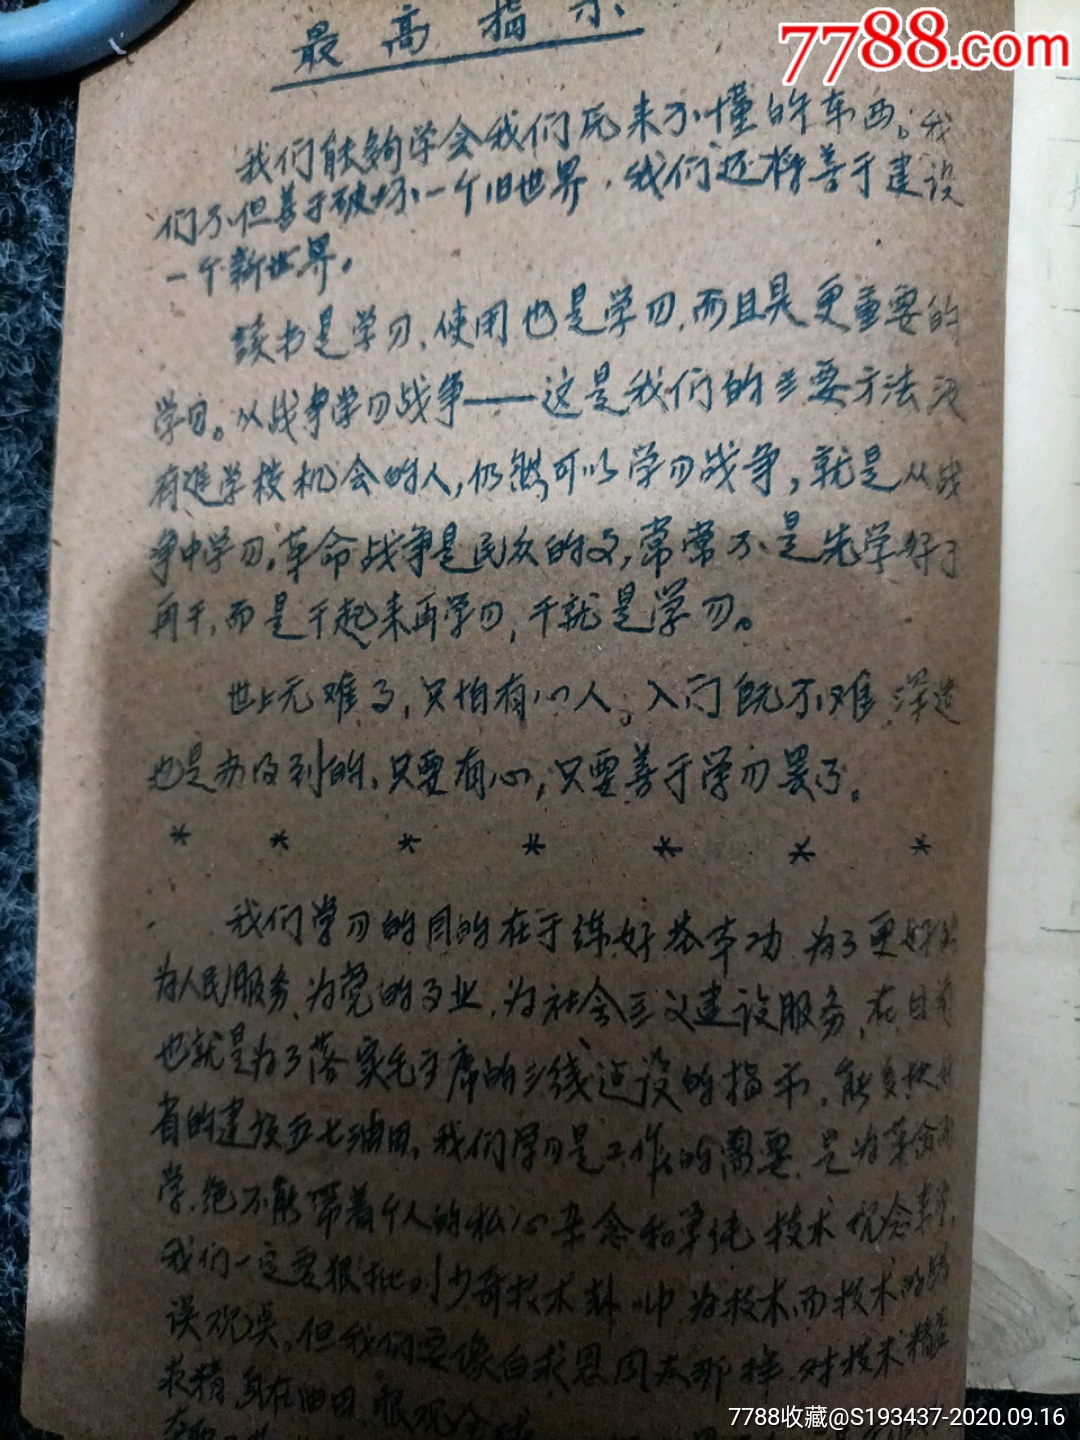 7788.com
最高指示
我们能够学会我们原来不懂的东西。我
们不但善于破坏一个旧世界，我们还将善于建设
一个新世界。
读书是学习，使用也是学习，而且是更重要的
学习。从战争学习战争——这是我们的主要方法没
有进学校机会的人，仍然可以学习战争，就是从战
争中学习。革命战争是民众的文，常常不是先学好了
再干，而是干起来再学习，干就是学习。
世上无难事，只怕有心人。入门既不难，深造
也是办得到的，只要有心，只要善于学习罢了。
* * * * * * *
我们学习的目的在于练好基本功，为了更好的
为人民服务、为党的事业，为社会主义建设服务，在目前
也就是为了落实毛主席的三线建设的指示，能多快好
省的建设五七油田，我们学习是工作的需要，是为革命而
学，绝不能带着个人的私心杂念和单纯技术观念来学，
我们一定要狠批刘少奇技术 为技术而技术的错
误观点，但我们要像白求恩同志那样，对技术精益
求精，身在油田，眼观全球
7788收藏@S193437-2020.09.16